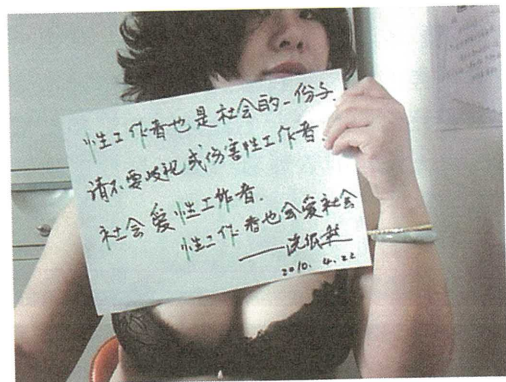 性工作者也是社会的一份子.
请不要歧视或伤害性工作者.
社会爱性工作者.
性工作者也会爱社会
2010. 4. 22